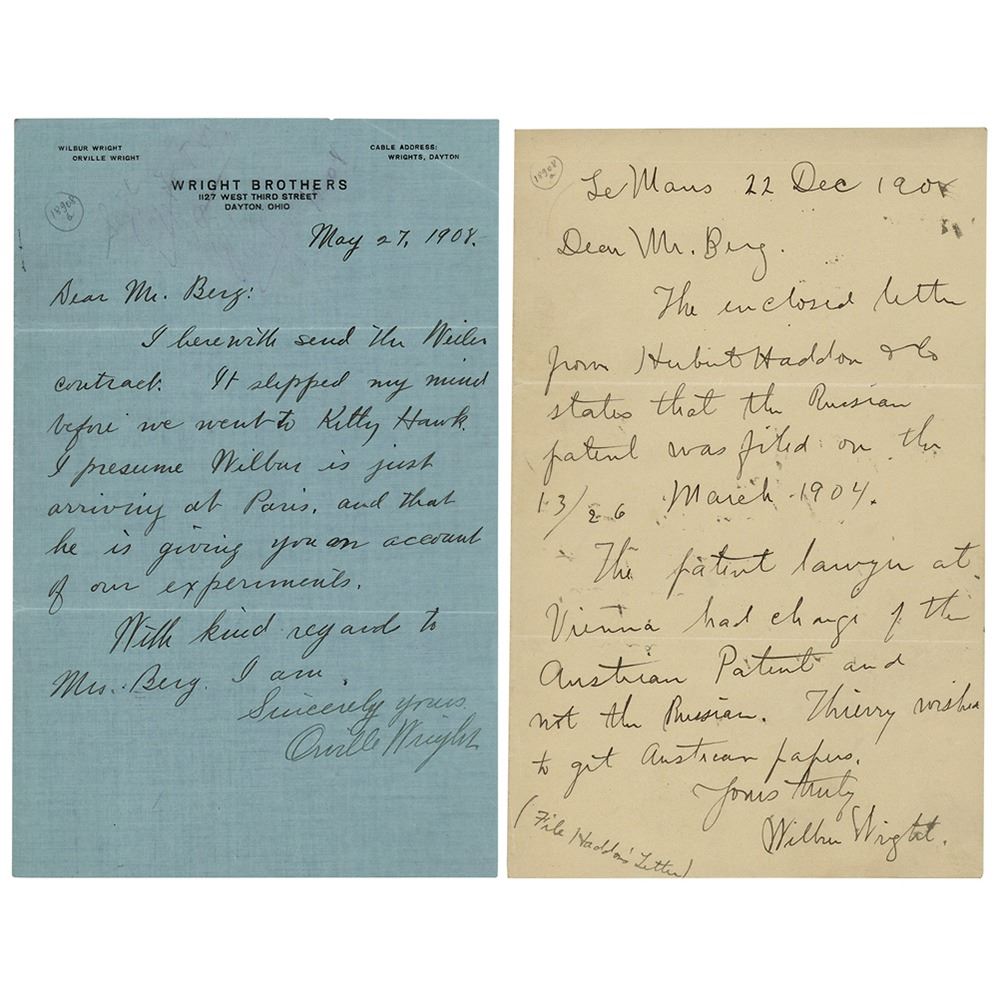 WILBUR WRIGHT
ORVILLE WRIGHT
CABLE ADDRESS:
WRIGHTS, DAYTON
WRIGHT BROTHERS
1127 WEST THIRD STREET
DAYTON, OHIO
May 27, 1908.
Dear Mr. Berg:
I herewith send the Weiler
contract. It slipped my mind
before we went to Kitty Hawk.
I presume Wilbur is just
arriving at Paris, and that
he is giving you an account
of our experiments.
With kind regard to
Mrs. Berg. I am,
Sincerely yours,
Orville Wright
Le Mans 22 Dec 1908
Dear Mr. Berg.
The enclosed letter
from Hubert Haddon & Co
states that the Russian
patent was filed on the
13/26 March 1904.
The patent lawyer at
Vienna had charge of the
Austrian Patent and
not the Russian. Thierry wished
to get Austrian papers.
Yours truly
Wilbur Wright.
(File Haddon's Letter)